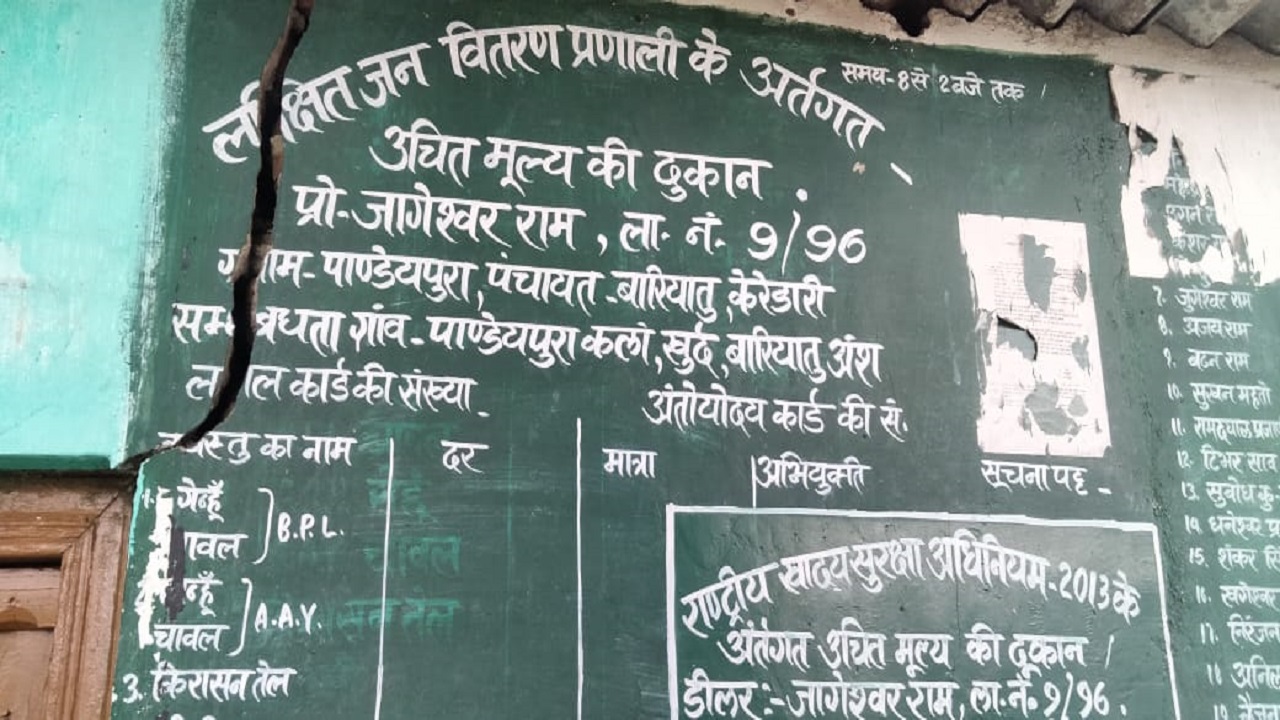 लक्षित जन वितरण प्रणाली के अर्तगत
समय-8 से 2 बजे तक
उचित मूल्य की दुकान
प्रो-जागेश्वर राम, ला. नं. 9/96
ग्राम-पाण्डेयपुरा, पंचायत-बारियातु, केरेडारी
सम्बधता गांव-पाण्डेयपुरा कलां, खुर्द, बारियातु अंश
कार्ड की संख्या
अंतोयोदय कार्ड की सं.
वस्तु का नाम
दर
मात्रा
अभियुक्ति
सूचना पट्ट
1. गेन्हूँ
चावल
B.P.L.
गेन्हूँ
चावल
A.A.Y.
3. किरासन तेल
राष्ट्रीय खाद्य सुरक्षा अधिनियम-2013 के
अंर्तगत उचित मूल्य की दूकान
डीलर:- जागेश्वर राम, ला. नं. 9/96.
7. जुगेश्वर राम
8. अजय राम
9. बढन राम
10. सुखन महतो
11. रामदयाल
12. टिभर साव
13. सुबोध
14. धनेश्वर
15. शंकर
16.
17. निरंजन
18. अनिल